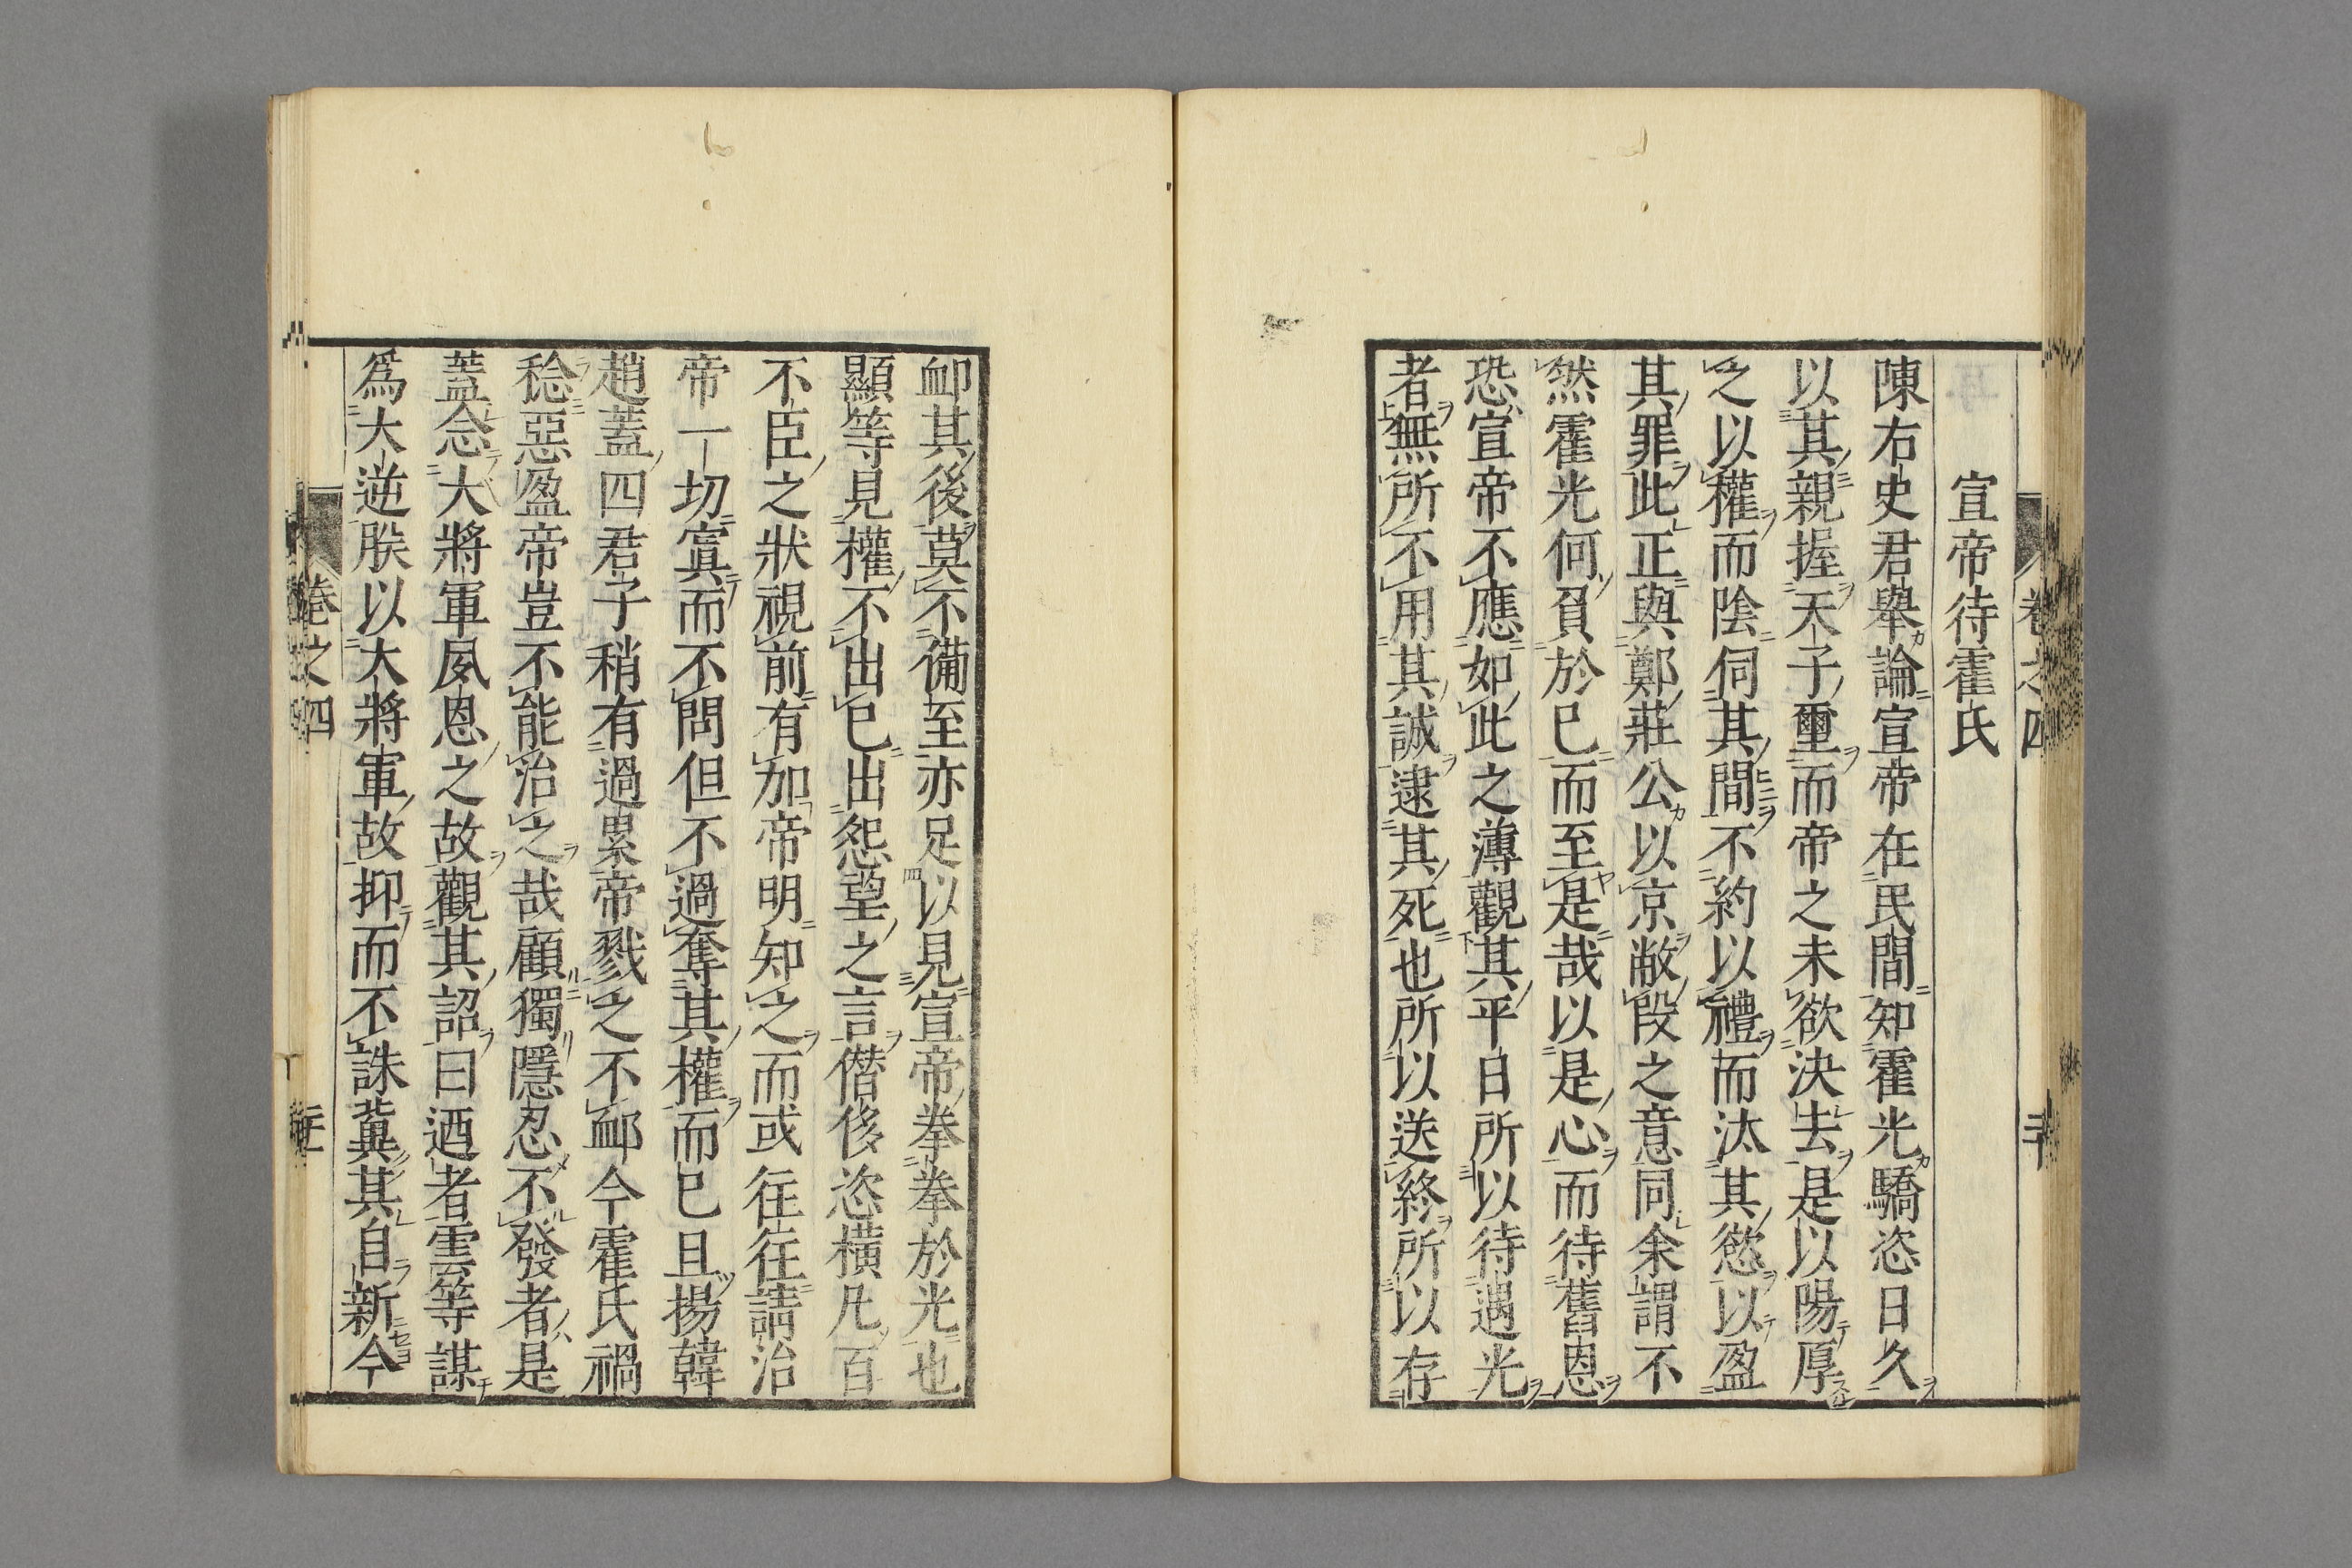 卷之四
宣帝待霍氏
陳右史君舉論宣帝在民間知霍光驕恣日久
以其親握天子璽而帝之未欲決去是以陽厚
之以權而陰伺其間不約以禮而汰其慾以盈
其罪此正與鄭莊公以京敝段之意同余謂不
然霍光何負於已而至是哉以是心而待舊恩
恐宣帝不應如此之薄觀其平日所以待遇光
者無所不用其誠逮其死也所以送終所以存
卹其後莫不備至亦足以見宣帝拳拳於光也
顯等見權不出已出怨望之言僭侈恣橫凡百
不臣之狀視前有加帝明知之而或往往請治
帝一切寘而不問但不過奪其權而已且揚韓
趙蓋四君子稍有過累帝戮之不卹今霍氏禍
稔惡盈帝豈不能治之哉顧獨隱忍不發者是
蓋念大將軍夙恩之故觀其詔曰迺者雲等謀
爲大逆朕以大將軍故抑而不誅冀其自新今
卷之四